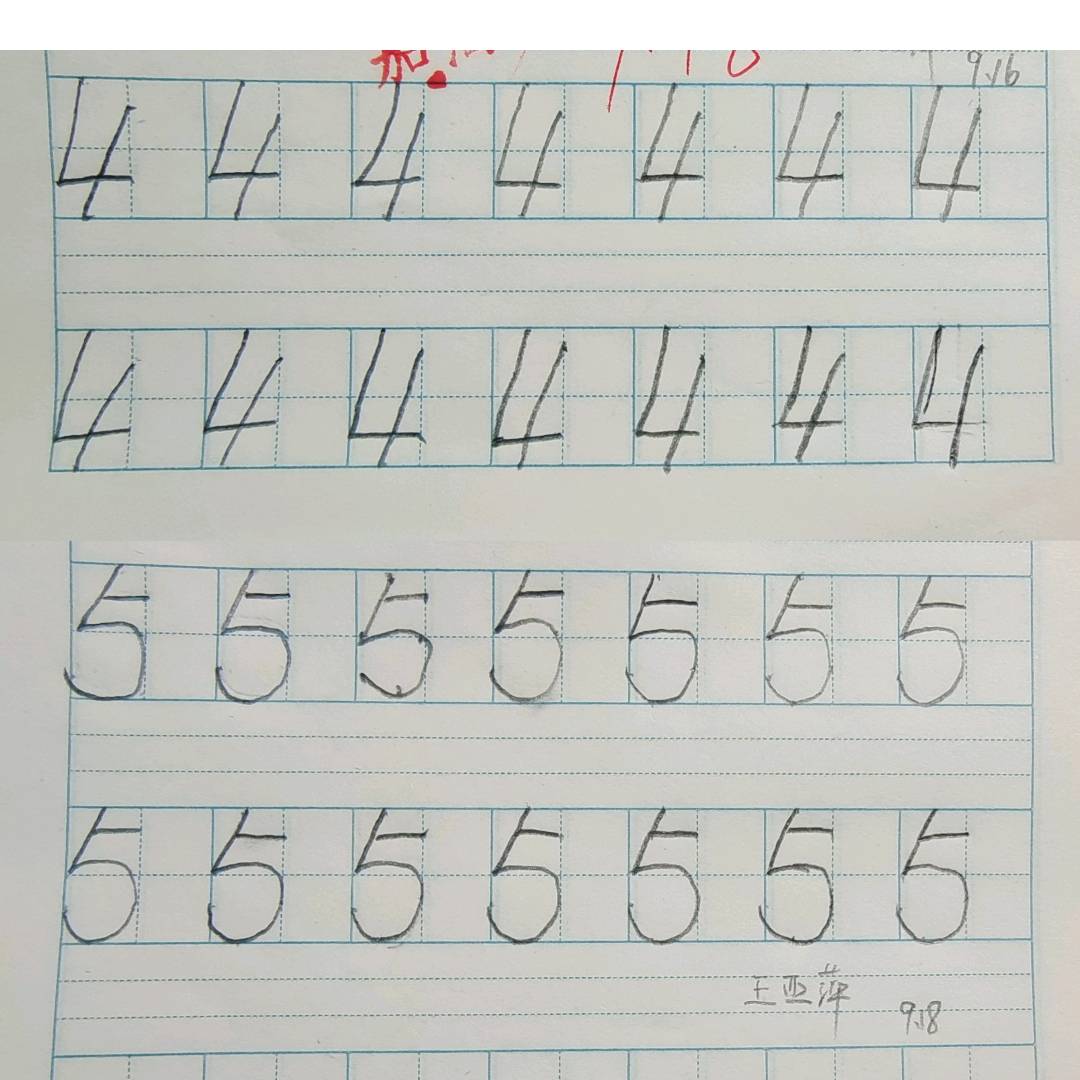 9.16
4 4 4 4 4 4 4
4 4 4 4 4 4 4
5 5 5 5 5 5 5
5 5 5 5 5 5 5
王亚萍
9.18